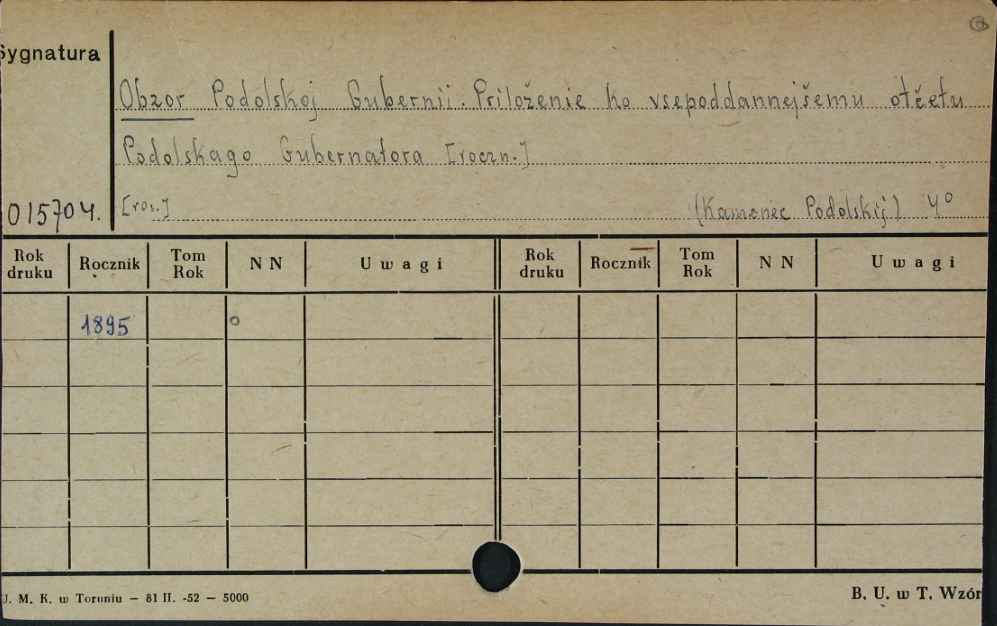 Sygnatura
Obzor Podolskoj Gubernii. Priloženie ko vsepoddannejšemu otčetu
Podolskago Gubernatora [roczn.]
015704. [ros.] (Kamenec Podolskij) 4°
Rok druku Rocznik Tom Rok N N Uwagi Rok druku Rocznik Tom Rok N N Uwagi
1895
U. M. K. w Toruniu — 81 II. -52 — 5000 B. U. w T. Wzór